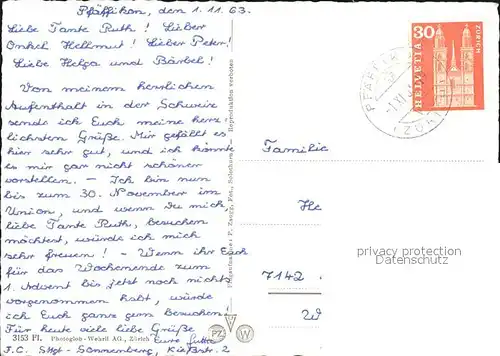 Pfäffikon, den 1. 11. 63.
Liebe Tante Ruth! Lieber
Onkel Hellmut! Lieber Peter!
Liebe Helga und Bärbel!
Von meinem herrlichen
Aufenthalt in der Schweiz
sende ich Euch meine herz-
lichsten Grüße. Mir gefällt es
hier sehr gut, und ich könnte
es mir gar nicht schöner
vorstellen. - Ich bin nun
bis zum 30. November im
Union, und wenn Du mich,
liebe Tante Ruth, besuchen
möchtest, würde ich mich
sehr freuen! - Wenn ihr Euch
für das Wochenende zum
1. Advent bis jetzt noch nichts
vorgenommen habt, würde
ich Euch ganz gern besuchen!
Für heute viele liebe Grüße
Eure Jutta
z.Z. Stgt-Sonnenberg, Kießstr. 2
3153 Fl. Photoglob-Wehrli AG., Zürich
Eigenaufnahme: P. Zaugg, Fot., Solothurn - Reproduktion verboten
PZ W
30
HELVETIA
ZÜRICH
Familie
He
7142
W
privacy protection
watermark by AKPool